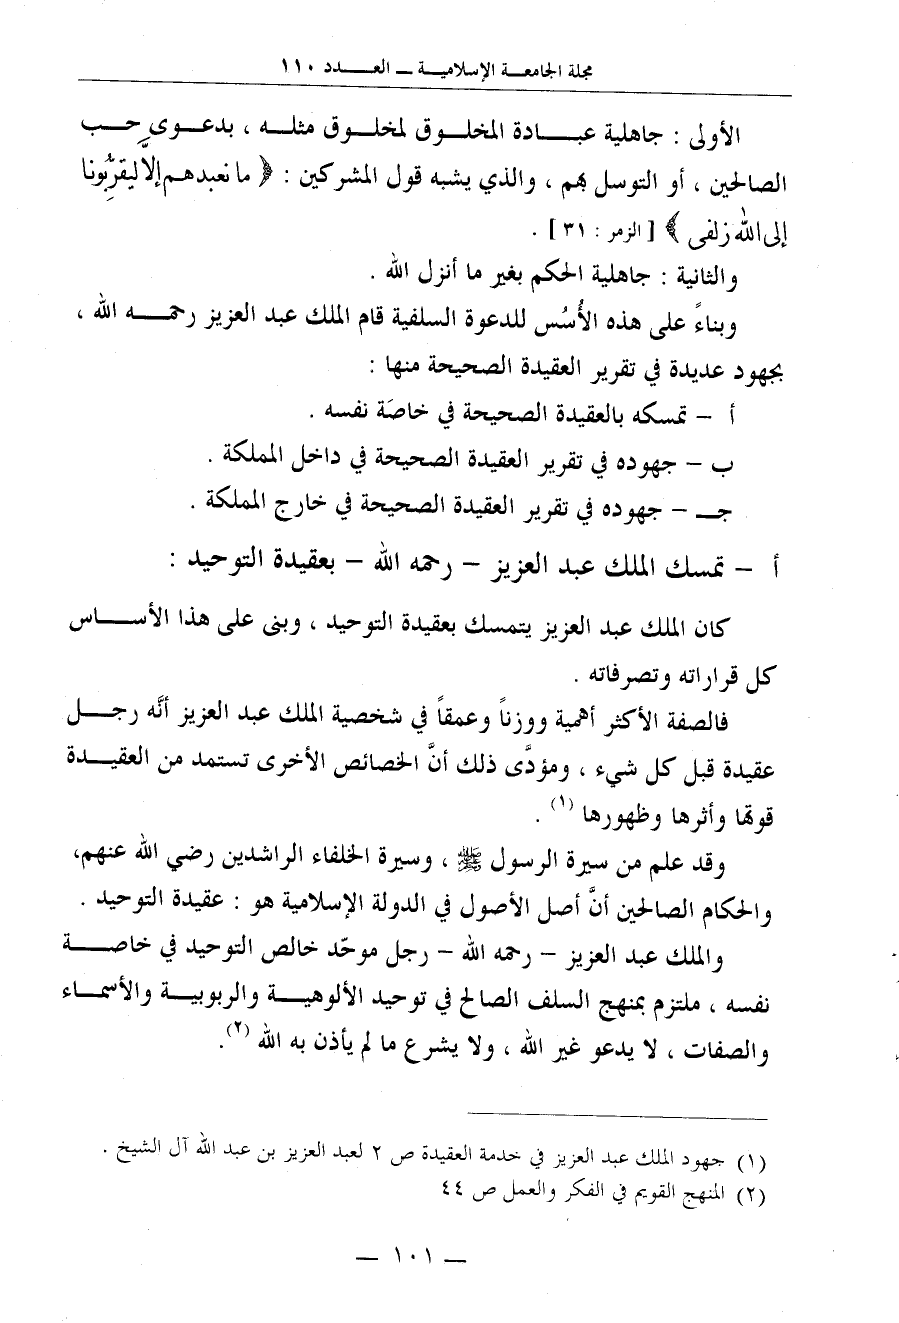 مجلة الجامعة الإسلامية – العدد ١١٠
الأولى : جاهلية عبادة المخلوق لمخلوق مثله ، بدعوى حب
الصالحين ، أو التوسل بهم ، والذي يشبه قول المشركين : ﴿ ما نعبدهم إلا ليقربُّونا
إلى الله زلفى ﴾ [ الزمر : ٣١ ] .
والثانية : جاهلية الحكم بغير ما أنزل الله .
وبناءً على هذه الأُسُس للدعوة السلفية قام الملك عبد العزيز رحمه الله ،
بجهود عديدة في تقرير العقيدة الصحيحة منها :
أ – تمسكه بالعقيدة الصحيحة في خاصَة نفسه .
ب – جهوده في تقرير العقيدة الصحيحة في داخل المملكة .
جـ – جهوده في تقرير العقيدة الصحيحة في خارج المملكة .
أ – تمسك الملك عبد العزيز – رحمه الله – بعقيدة التوحيد :
كان الملك عبد العزيز يتمسك بعقيدة التوحيد ، وبنى على هذا الأساس
كل قراراته وتصرفاته .
فالصفة الأكثر أهمية ووزناً وعمقاً في شخصية الملك عبد العزيز أنَّه رجل
عقيدة قبل كل شيء ، ومؤدَّى ذلك أنَّ الخصائص الأخرى تستمد من العقيدة
قوتها وأثرها وظهورها (١) .
وقد علم من سيرة الرسول ﷺ ، وسيرة الخلفاء الراشدين رضي الله عنهم،
والحكام الصالحين أنَّ أصل الأصول في الدولة الإسلامية هو : عقيدة التوحيد .
والملك عبد العزيز – رحمه الله – رجل موحّد خالص التوحيد في خاصة
نفسه ، ملتزم بمنهج السلف الصالح في توحيد الألوهية والربوبية والأسماء
والصفات ، لا يدعو غير الله ، ولا يشرع ما لم يأذن به الله (٢).
(١) جهود الملك عبد العزيز في خدمة العقيدة ص ٢ لعبد العزيز بن عبد الله آل الشيخ .
(٢) المنهج القويم في الفكر والعمل ص ٤٤
– ١٠١ –